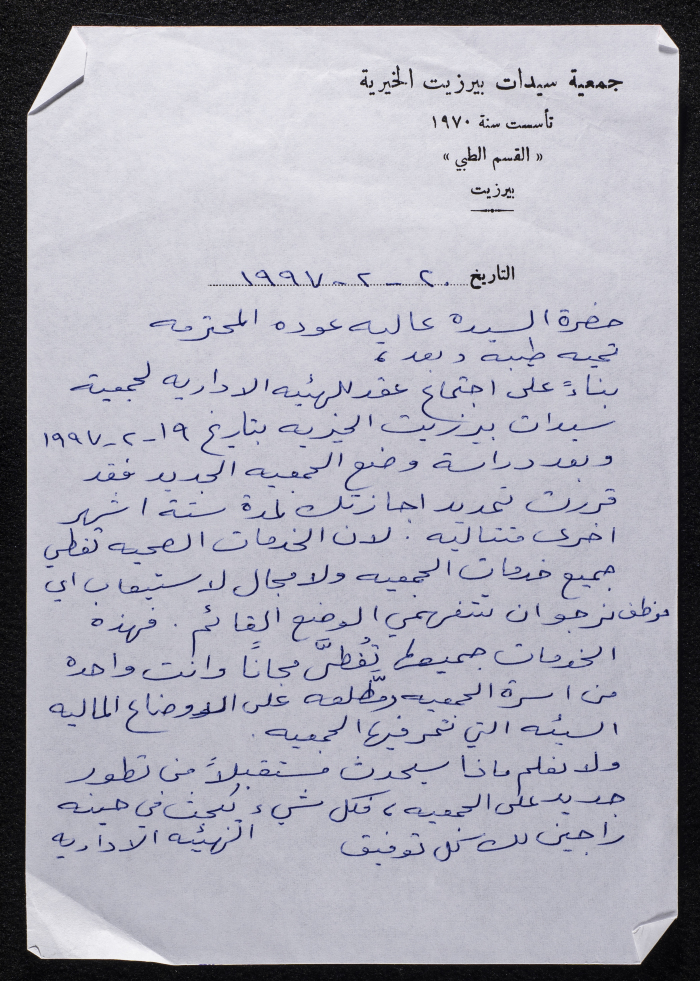 جمعية سيدات بيرزيت الخيرية
تأسست سنة ١٩٧٠
« القسم الطبي »
بيرزيت
التاريخ ٢٠-٢-١٩٩٧
حضرة السيدة عاليه عوده المحترمه
تحيه طيبه وبعد ،
بناءً على اجتماع عقد للهيئه الاداريه لجمعية
سيدات بيرزيت الخيريه بتاريخ ١٩-٢-١٩٩٧
وبعد دراسة وضع الجمعيه الجديد فقد
قررت تمديد اجازتك لمدة ستة اشهر
اخرى متتاليه . لان الخدمات الصحيه تغطي
جميع خدمات الجمعيه ولا مجال لاستيعاب اي
موظف نرجو ان تتفهمي الوضع القائم . فهذه
الخدمات جميعها تُغطى مجاناً وانت واحدة
من اسرة الجمعيه ومطّلعه على الاوضاع الماليه
السيئه التي تمر فيها الجمعيه .
ولا نعلم ماذا سيحدث مستقبلاً من تطور
جديد على الجمعيه ، فكل شيء يبحث في حينه
راجين لك كل توفيق الهيئه الاداريه